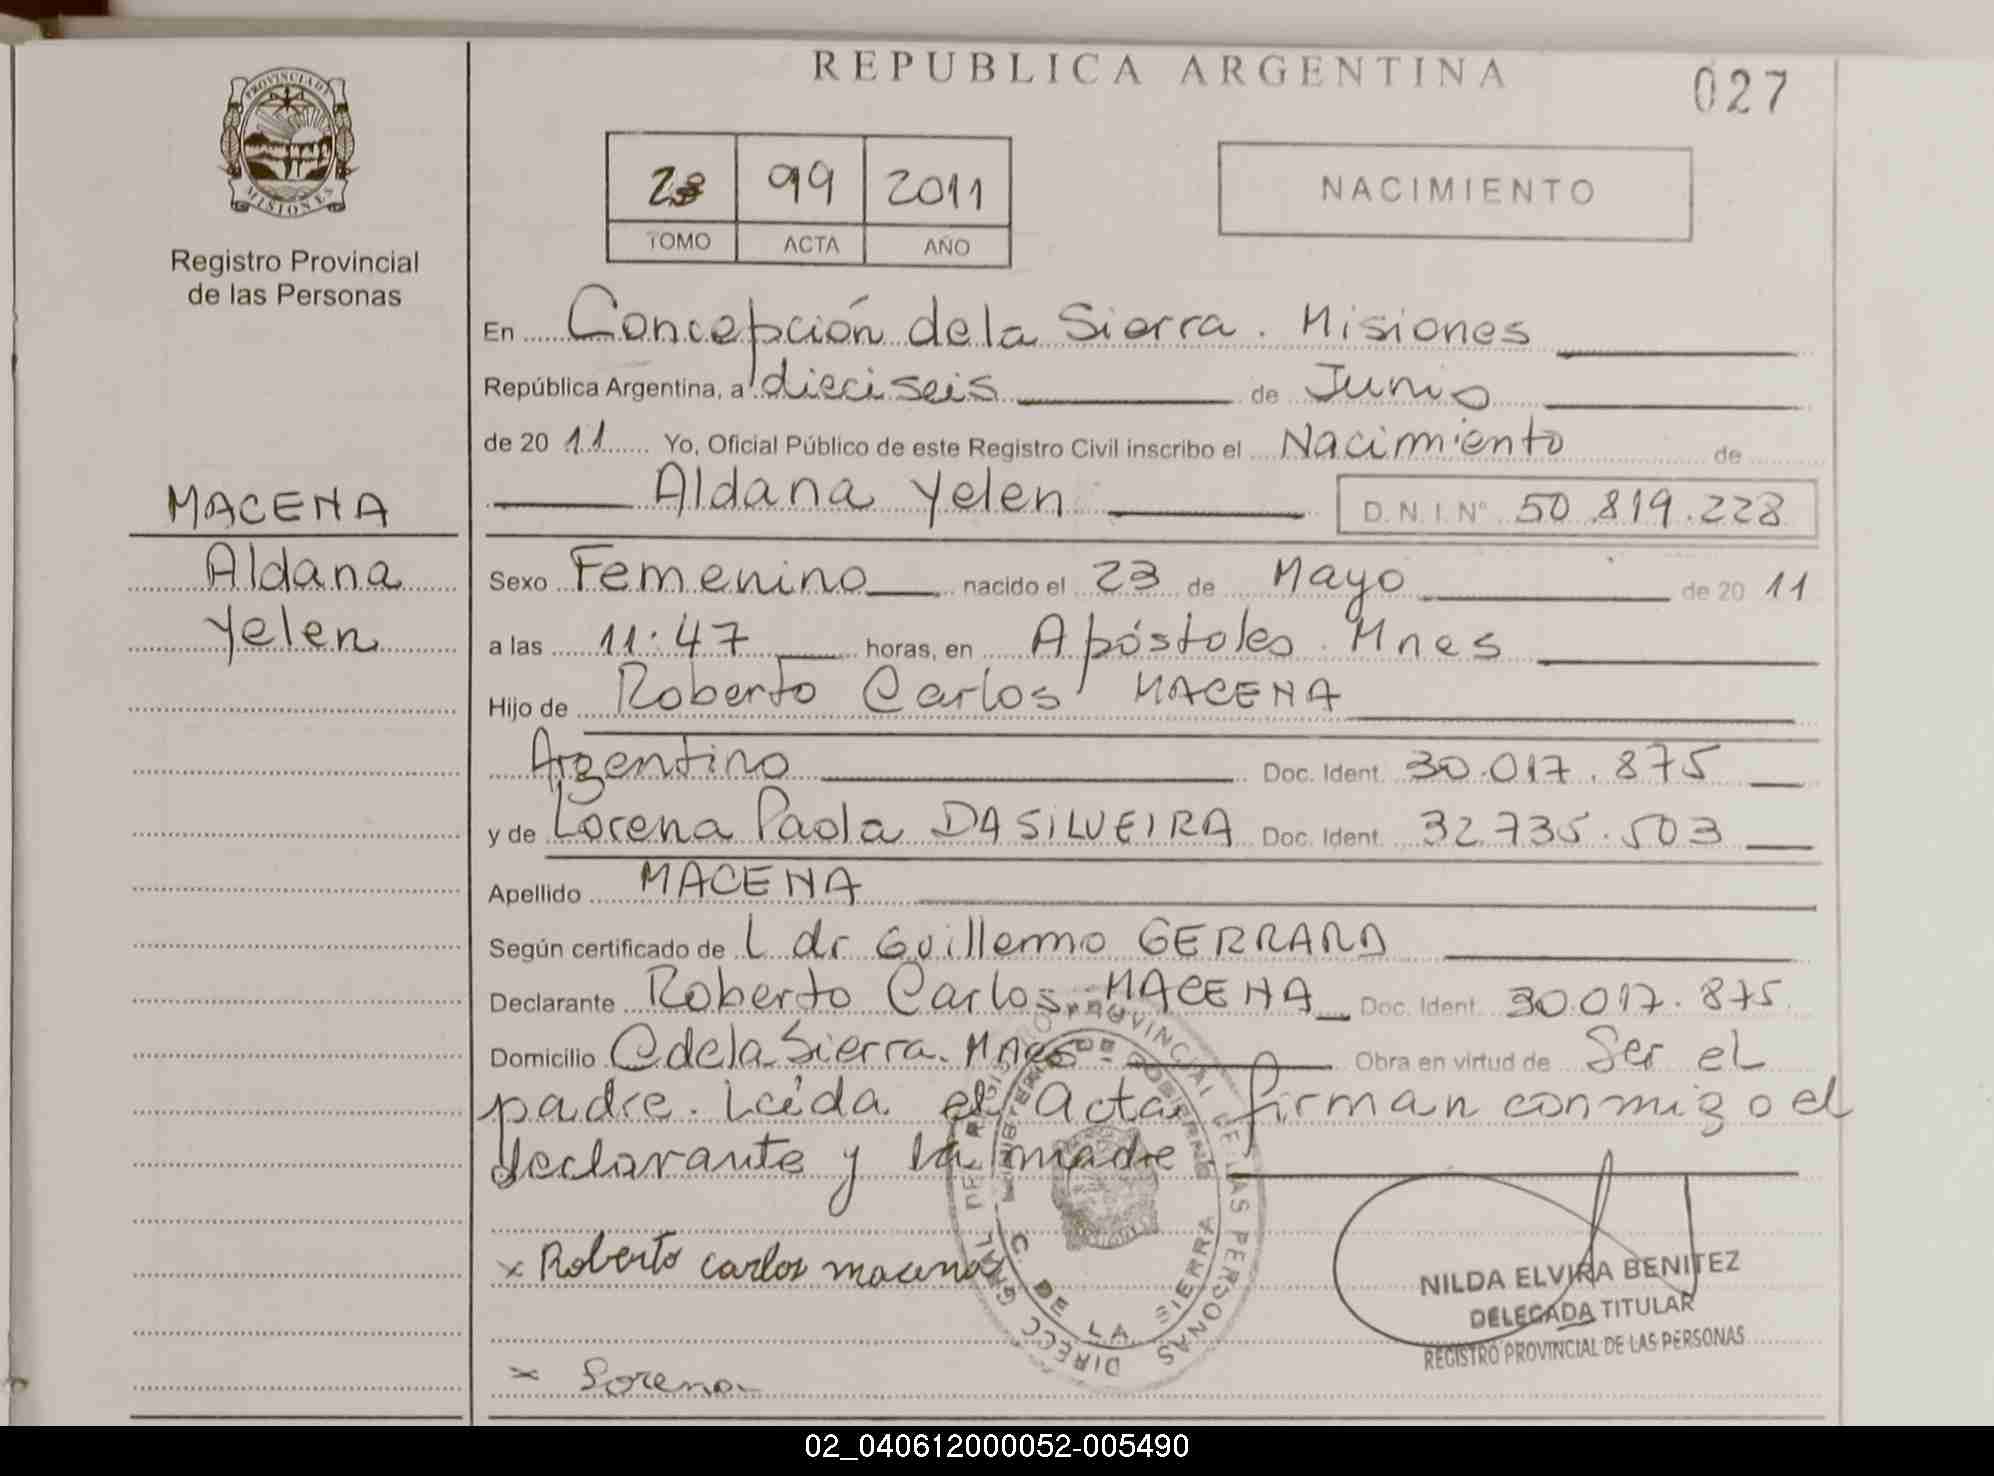 REPUBLICA ARGENTINA
027
PROVINCIA DE
MISIONES
Registro Provincial
de las Personas
99 2011
TOMO ACTA AÑO
NACIMIENTO
En Concepción de la Sierra. Misiones
República Argentina, a dieciseis de Junio
de 2011 Yo, Oficial Público de este Registro Civil inscribo el Nacimiento de
Aldana Yelen D.N.I. N° 50.819.228
MACENA
Aldana
Yelen
Sexo Femenino nacido el 23 de Mayo de 2011
a las 11:47 horas, en Apóstoles. Mnes
Hijo de Roberto Carlos MACENA
Argentino Doc. Ident. 30.017.875
y de Lorena Paola DA SILVEIRA Doc. Ident. 32.735.503
Apellido MACENA
Según certificado de L dr Guillermo
Declarante Roberto Carlos MACENA Doc. Ident. 30.017.875
Domicilio C de la Sierra. Mnes Obra en virtud de Ser el
padre. Leída el Acta firman conmigo el
declarante y la madre
x Roberto carlos macena
x Lorena
DIRECC GRAL DEL REGISTRO PROVINCIAL DE LAS PERSONAS
MINISTERIO DE GOBIERNO
C. DE LA SIERRA
NILDA ELVIRA BENITEZ
DELEGADA TITULAR
REGISTRO PROVINCIAL DE LAS PERSONAS
02_040612000052-005490